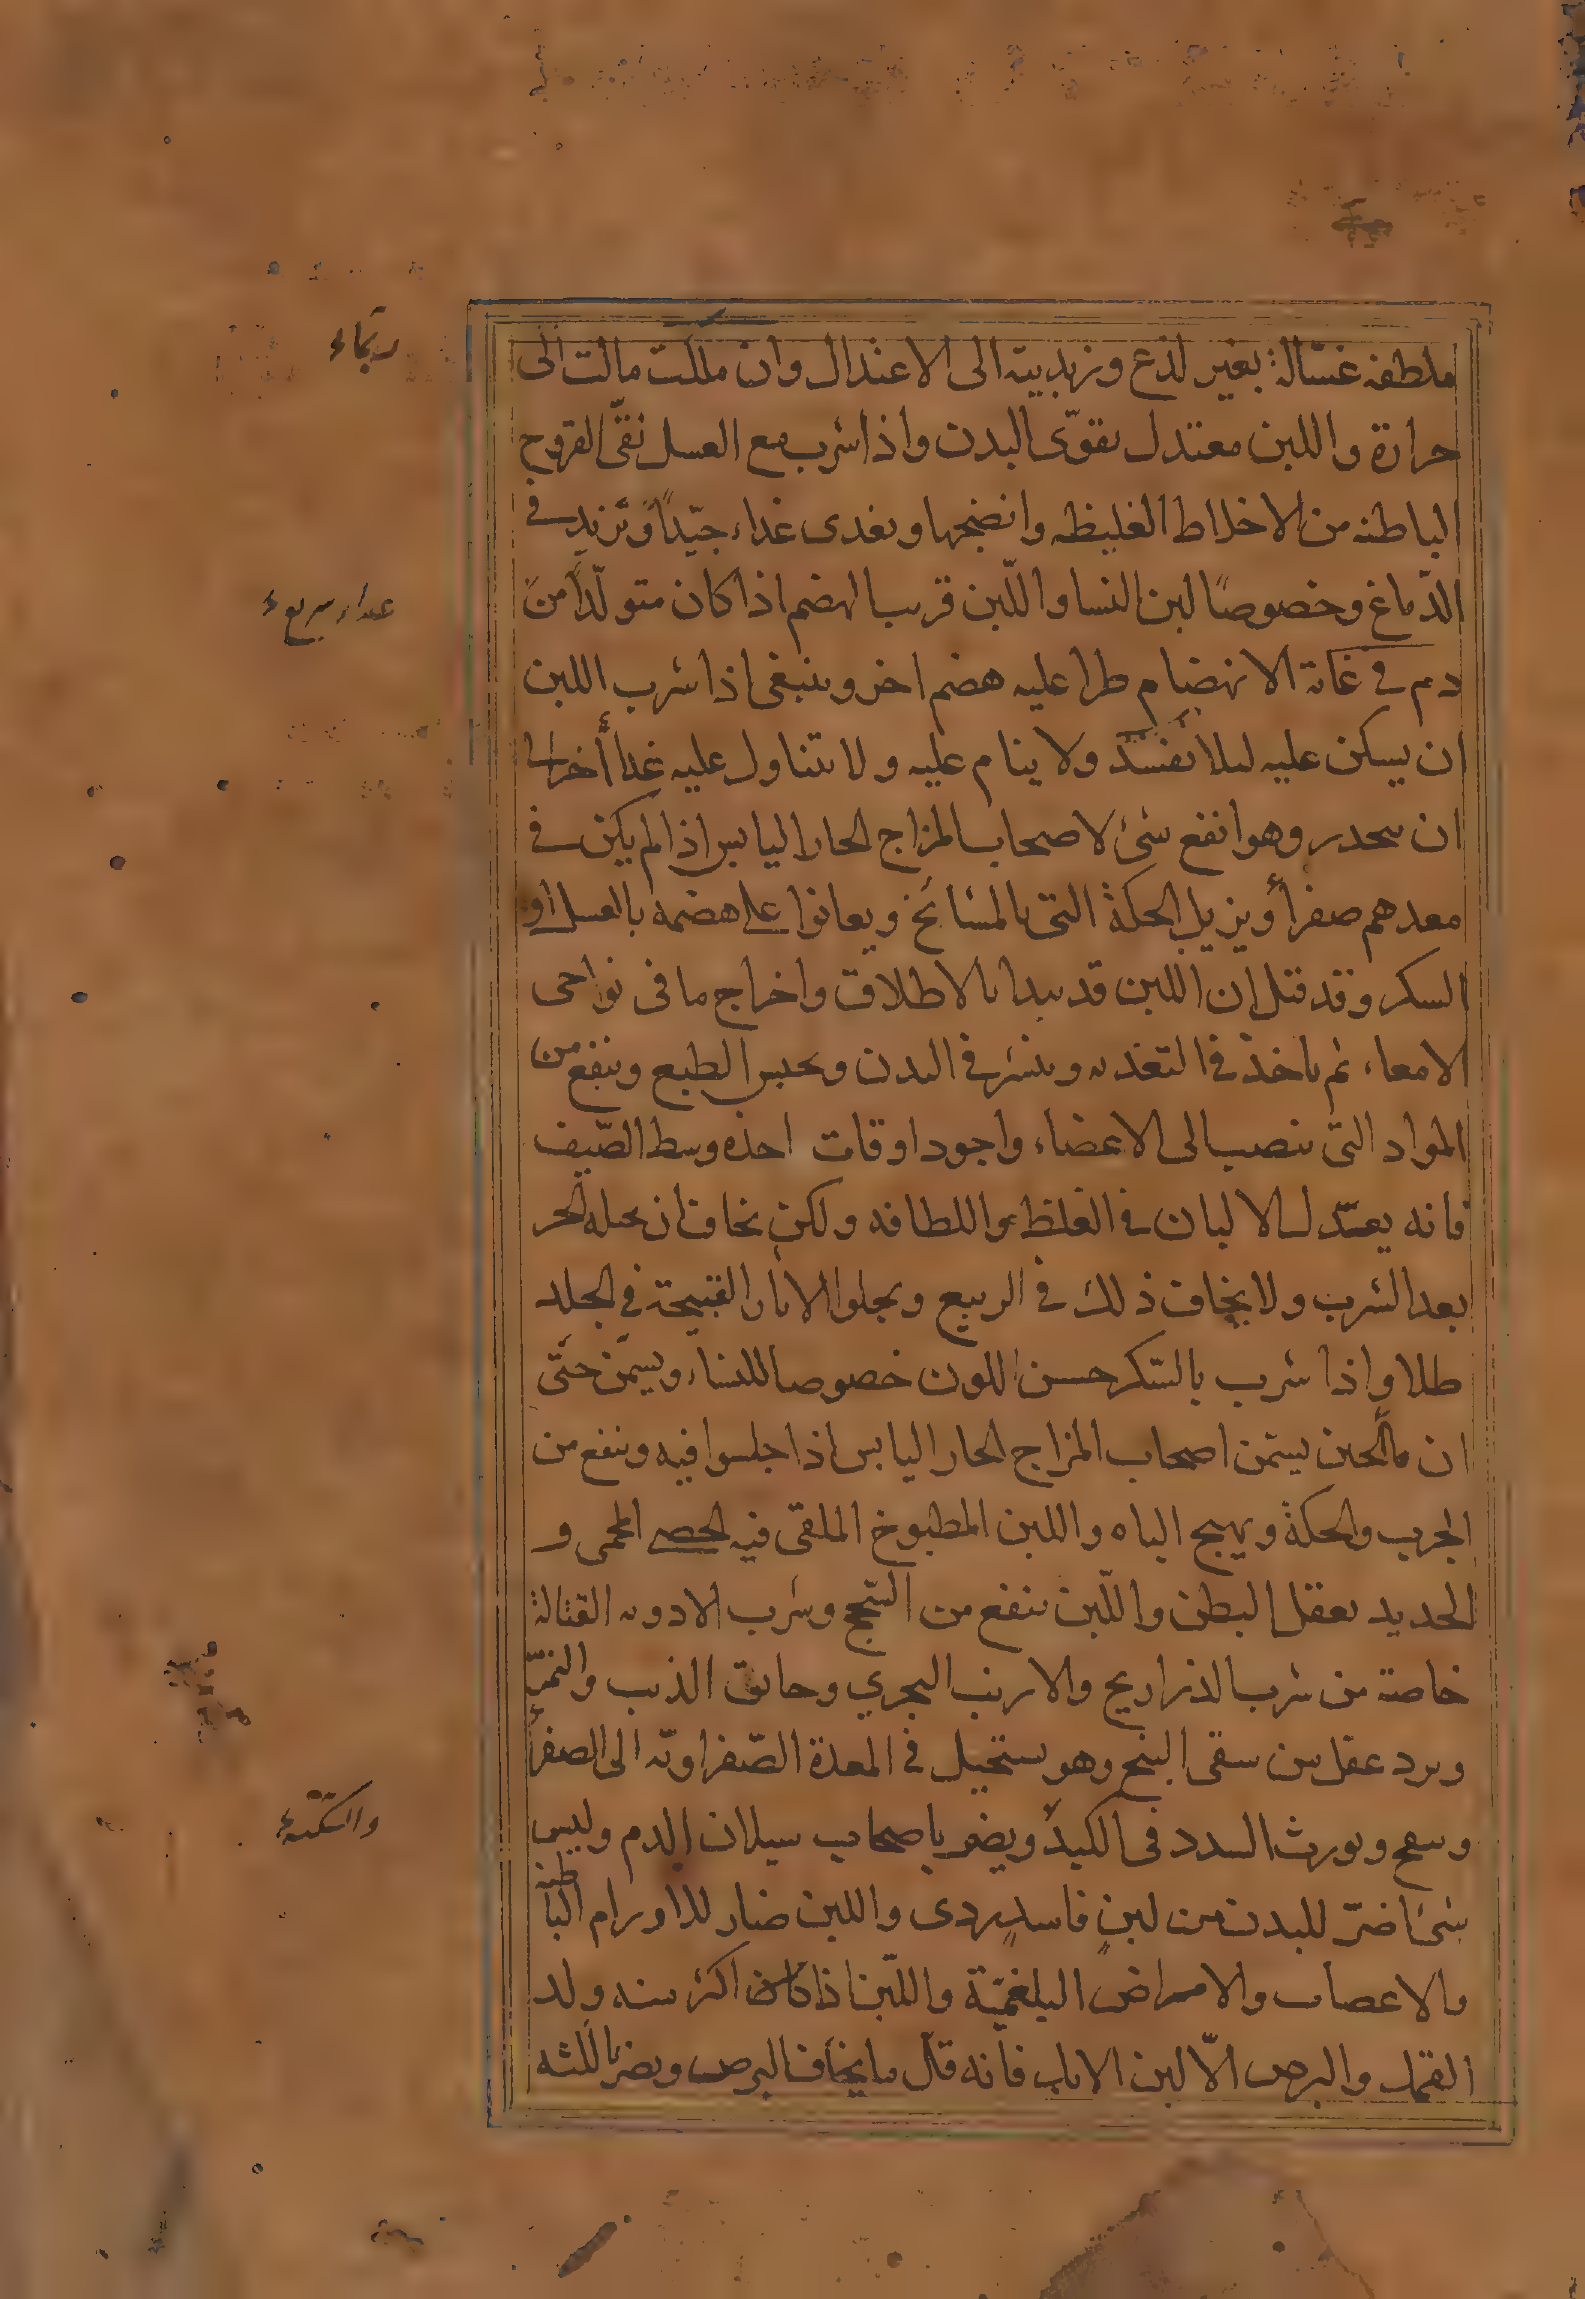 ملطفه غسّالة بغير لذع وزبديته الى الاعتدال وان ملكت مالت الى
حرارة واللبن معتدل يقوّى البدن واذا شرب مع العسل نقّى القروح
الباطنه من الاخلاط الغليظه وانضجها ويغدى غداء جيّداً ويزيد فى
الدّماغ وخصوصاً لبن النسا واللّبن قريب الهضم اذا كان متولّداً من
دم فى غاية الانهضام طرا عليه هضم اخر وينبغى اذا شرب اللبن
ان يسكن عليه ليلا يفسد ولا ينام عليه ولا يتناول عليه غدا أخر الى
ان ينحدر وهو انفع شئ لاصحاب المزاج الحار اليابس اذا لم يكن فى
معدهم صفرأ ويزيل الحكة التى بالمشائخ ويعانوا على هضمه بالعسل او
السكر وقد قيل ان اللبن قد يبدا بالاطلاق واخراج ما فى نواحى
الامعاء ثم ياخذ فى التغديه وينشر فى البدن ويحبس الطبع وينفع من
المواد التى تنصب الى الاعضاء واجود اوقات اخذه وسط الصّيف
فانه يعتدل الالبان فى الغلظ واللطافه ولكن يخاف ان يحيله الحر
بعد الشرب ولا يخاف ذلك فى الربيع ويجلوا الاثار القبيحة فى الجلد
طلا واذا شرب بالسّكر حسن اللون خصوصا للنساء ويسمّن حتّى
ان ماالجبن يسمّن اصحاب المزاج الحار اليابس اذا جلسوا فيه وينفع من
الجرب والحكة ويهيج الباه واللبن المطبوخ الملقى فيه الحصى المحمى و
الحديد يعقل البطن واللّبن ينفع من السّحج وشرب الادويه القتالة
خاصة من شرب الذراريح والارنب البحري وخانق الذيب والنمر
ويرد عقل من سقى البنج وهو يستحيل فى المعدة الصّفراويّه الى الصفرأ
وينفخ ويورث السدد فى الكبد ويضر باصحاب سيلان الدم وليس
شئ اضرّ للبدن من لبنٍ فاسدٍ ردى واللبن ضار للاورام الباطنه
والاعصاب والامراض البلغميّة واللّبن اذا كان اكثر منه ولد
القمل والبرص الّا لبن الاباب فانه قال ما يخاف البرص ويضر باللثه
غداء سريع
والنكتة